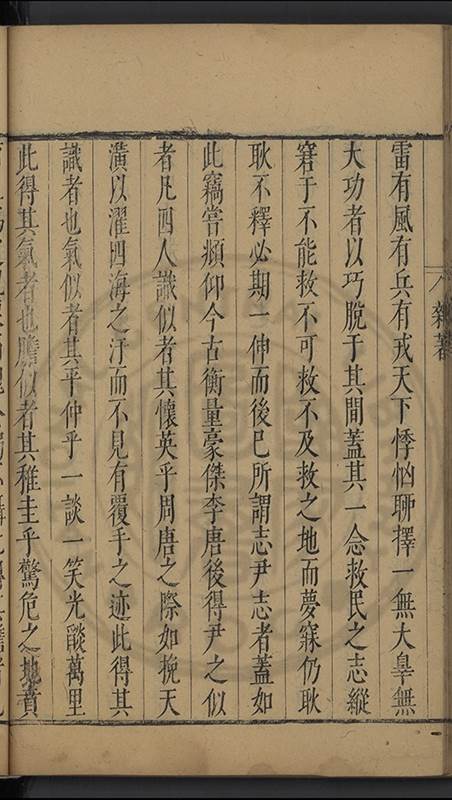 雜著
雷有風有兵有戎天下悸惱聊擇一無大辠無
大功者以巧脫于其間蓋其一念救民之志縱
窘于不能救不可救不及救之地而夢寐仍耿
耿不釋必期一伸而後已所謂志尹志者蓋如
此竊嘗頫仰今古衡量豪傑李唐後得尹之似
者凡四人識似者其懷英乎周唐之際如挽天
潢以濯四海之汙而不見有覆手之迹此得其
識者也氣似者其平仲乎一談一笑光燄萬里
此得其氣者也膽似者其稚圭乎驚危之地賁